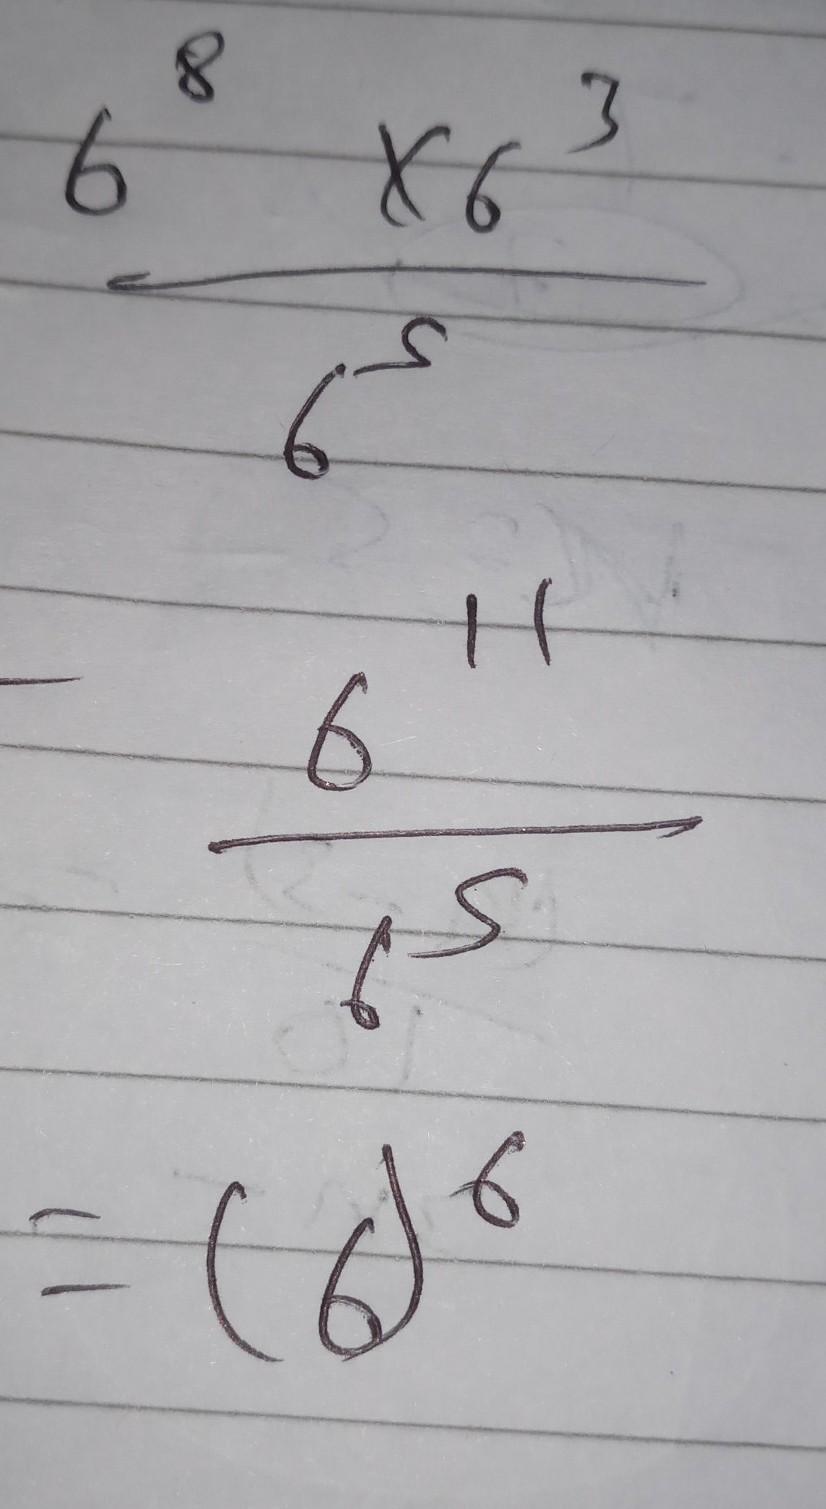 6⁸ × 6³
6⁵
6¹¹
6⁵
= (6)⁶